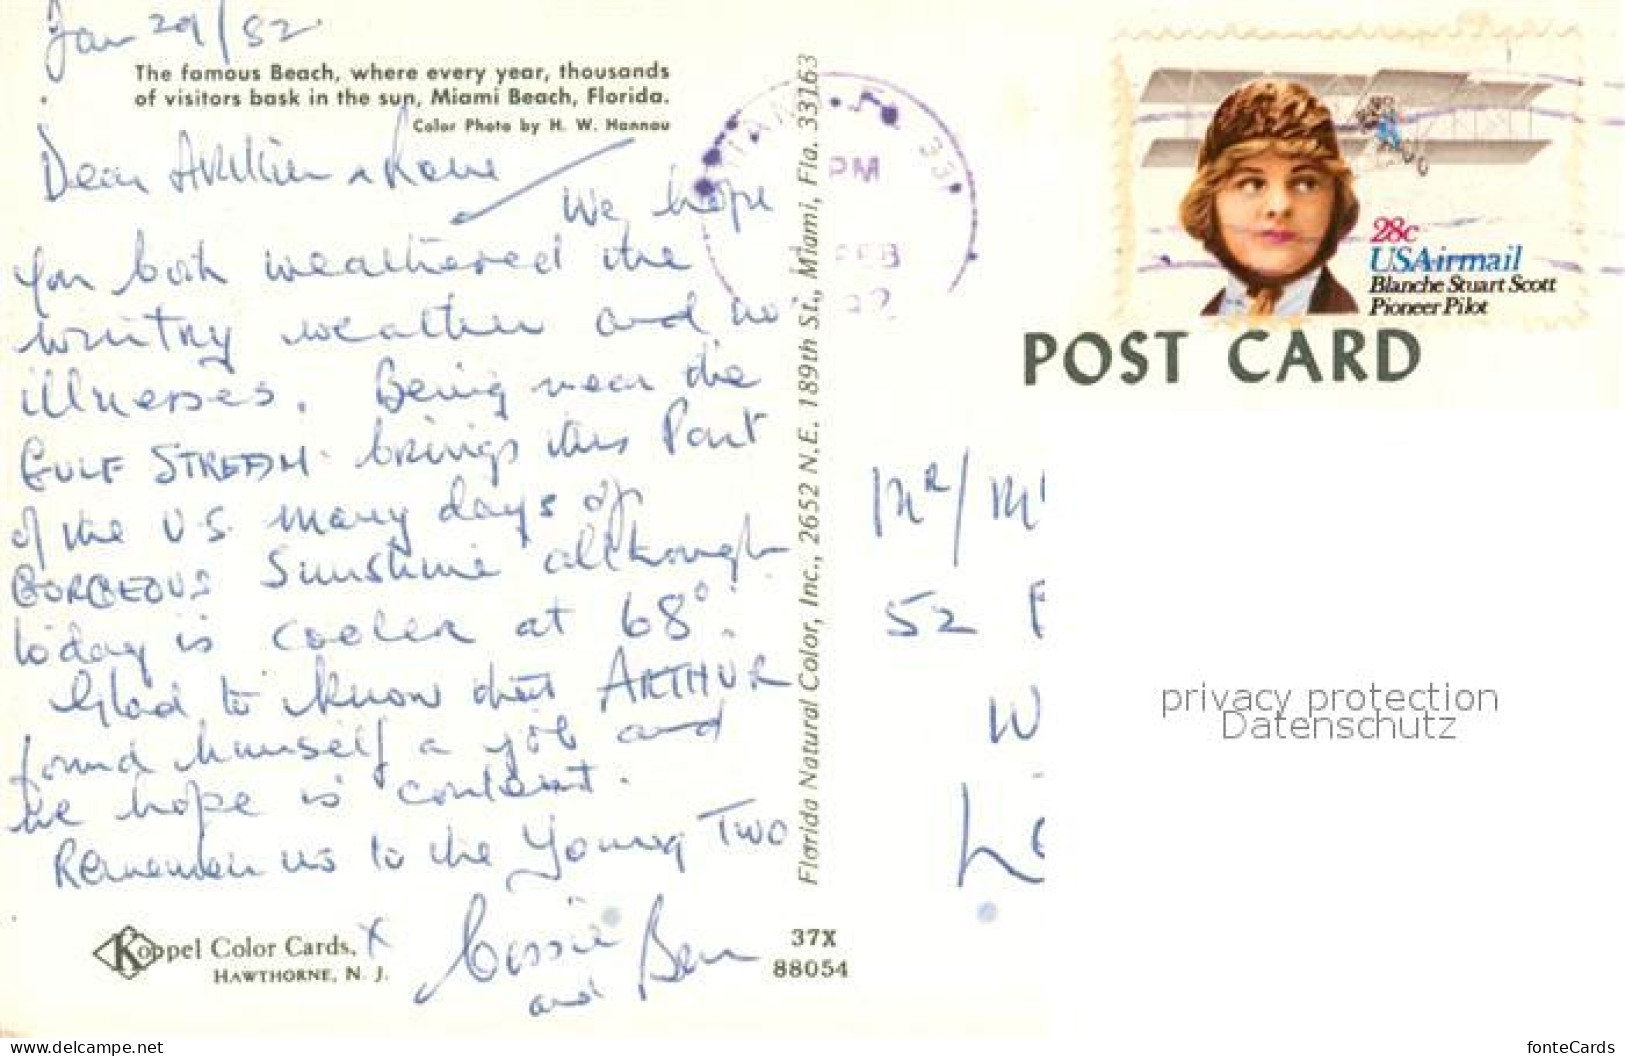 Jan 29/82
The famous Beach, where every year, thousands
of visitors bask in the sun, Miami Beach, Florida.
Color Photo by H. W. Hannau
Dear
We hope
you both weathered the
wintry weather and no
illnesses. Being near the
GULF STREAM brings this Part
of the U.S. many days of
GORGEOUS Sunshine although
today is cooler at 68°.
Glad to know that ARTHUR
found himself a job and
we hope is content.
Remember us to the Young Two
X
Cissie
and Ben
Koppel Color Cards,
HAWTHORNE, N. J.
37X
88054
Florida Natural Color, Inc., 2652 N.E. 189th St., Miami, Fla. 33163
PM
28c
USAirmail
Blanche Stuart Scott
Pioneer Pilot
POST CARD
MR/M
52
W
privacy protection
Datenschutz
www.delcampe.net
fonteCards